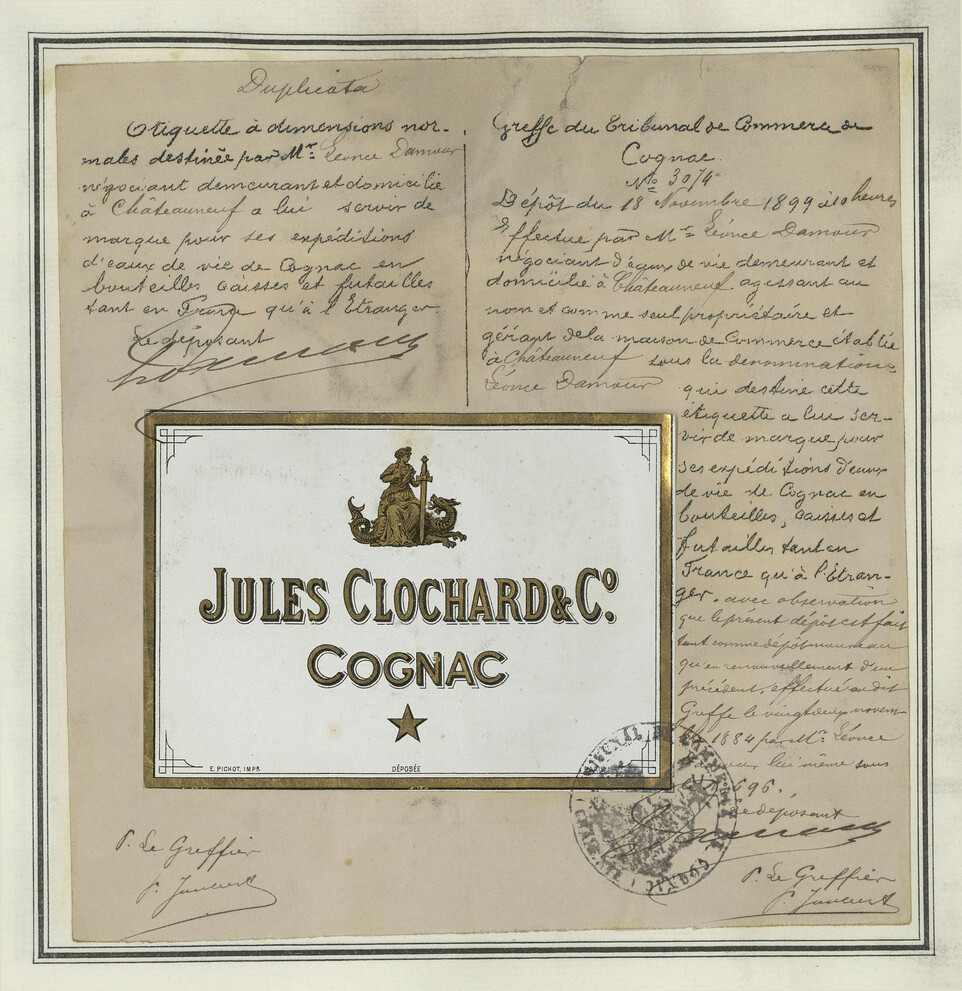 Duplicata
Etiquette à dimensions nor-
males destinée par Mr. Léonce Damour
négociant demeurant et domicilié
à Châteauneuf a lui servir de
marque pour ses expéditions
d'eaux de vie de Cognac en
bouteilles caisses et futailles
tant en France qu'à l'Etranger.
Le déposant
Greffe du Tribunal de Commerce de
Cognac.
No. 3074
Dépôt du 18 Novembre 1899 à 10 heures
Effectué par Mr. Léonce Damour
négociant d'eaux de vie demeurant et
domicilié à Châteauneuf agissant au
nom et comme seul propriétaire et
gérant de la maison de Commerce établie
à Châteauneuf sous la dénomination
Léonce Damour qui destine cette
étiquette a lui ser-
vir de marque pour
ses expéditions d'eaux
de vie de Cognac en
bouteilles, caisses et
futailles tant en
France qu'à l'Etran-
ger. avec observation
que le présent dépôt est fait
tant comme dépôt nouveau
qu'en renouvellement d'un
précédent, effectué au dit
Greffe le vingt deux novem-
1884 par Mr. Léonce
lui même sous
696.
Le déposant
JULES CLOCHARD & Co.
COGNAC
E. PICHOT, IMPR.
DÉPOSÉE
TRIBUNAL DE COMMERCE
COGNAC
P. Le Greffier
P. Le Greffier